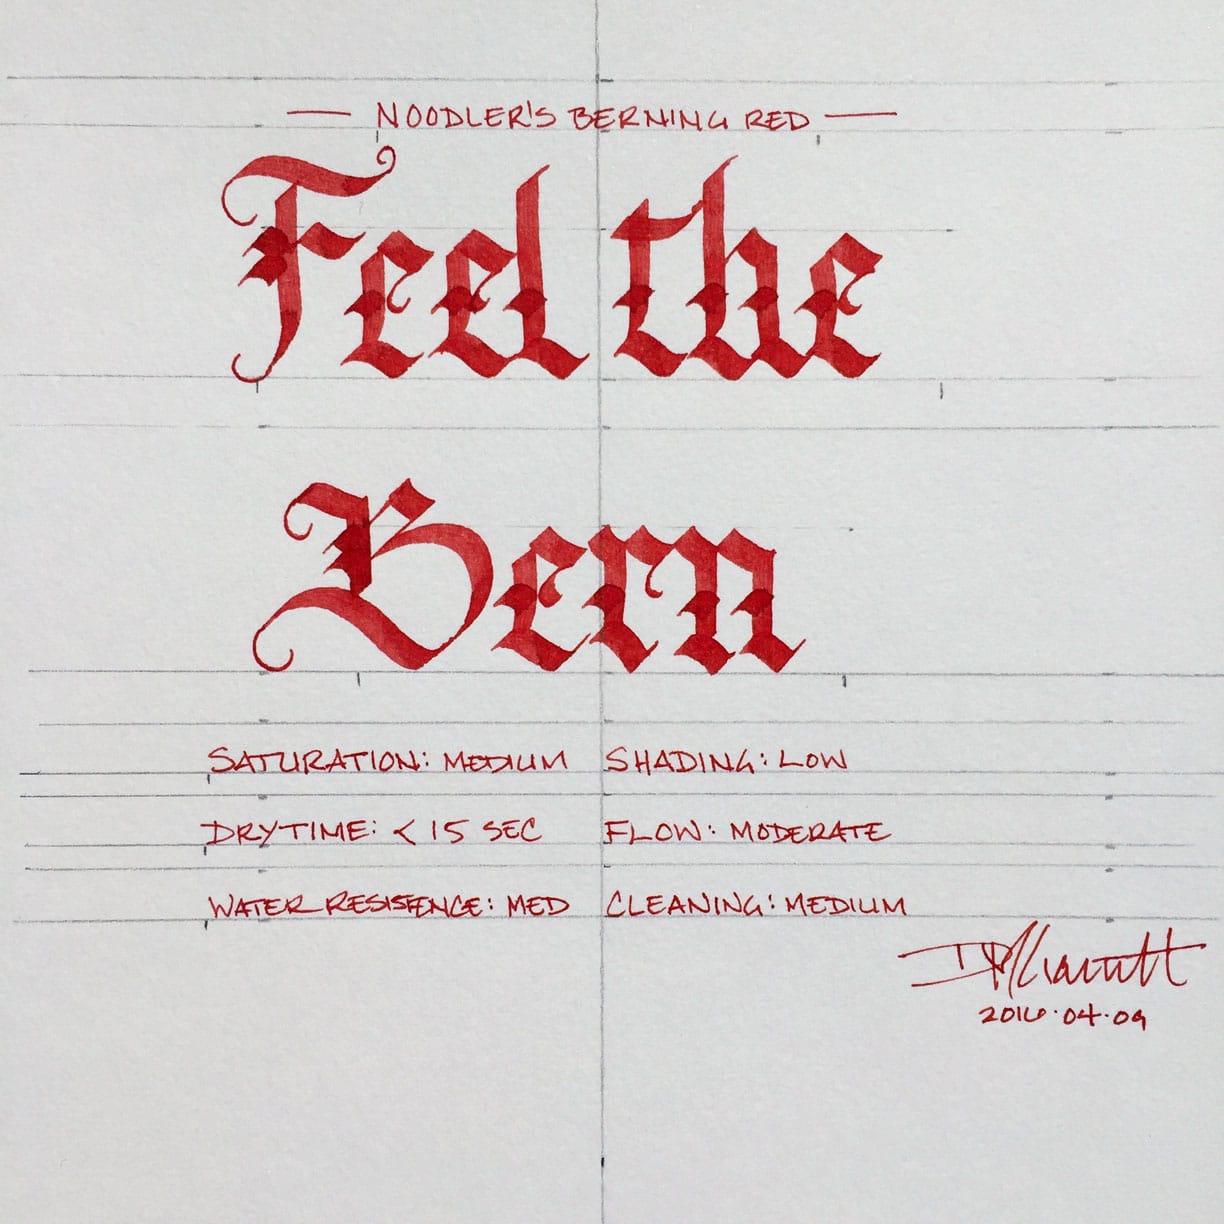 — NOODLER'S BERNING RED —
Feel the
Bern
SATURATION: MEDIUM SHADING: LOW
DRYTIME: < 15 SEC FLOW: MODERATE
WATER RESISTENCE: MED CLEANING: MEDIUM
2016·04·09